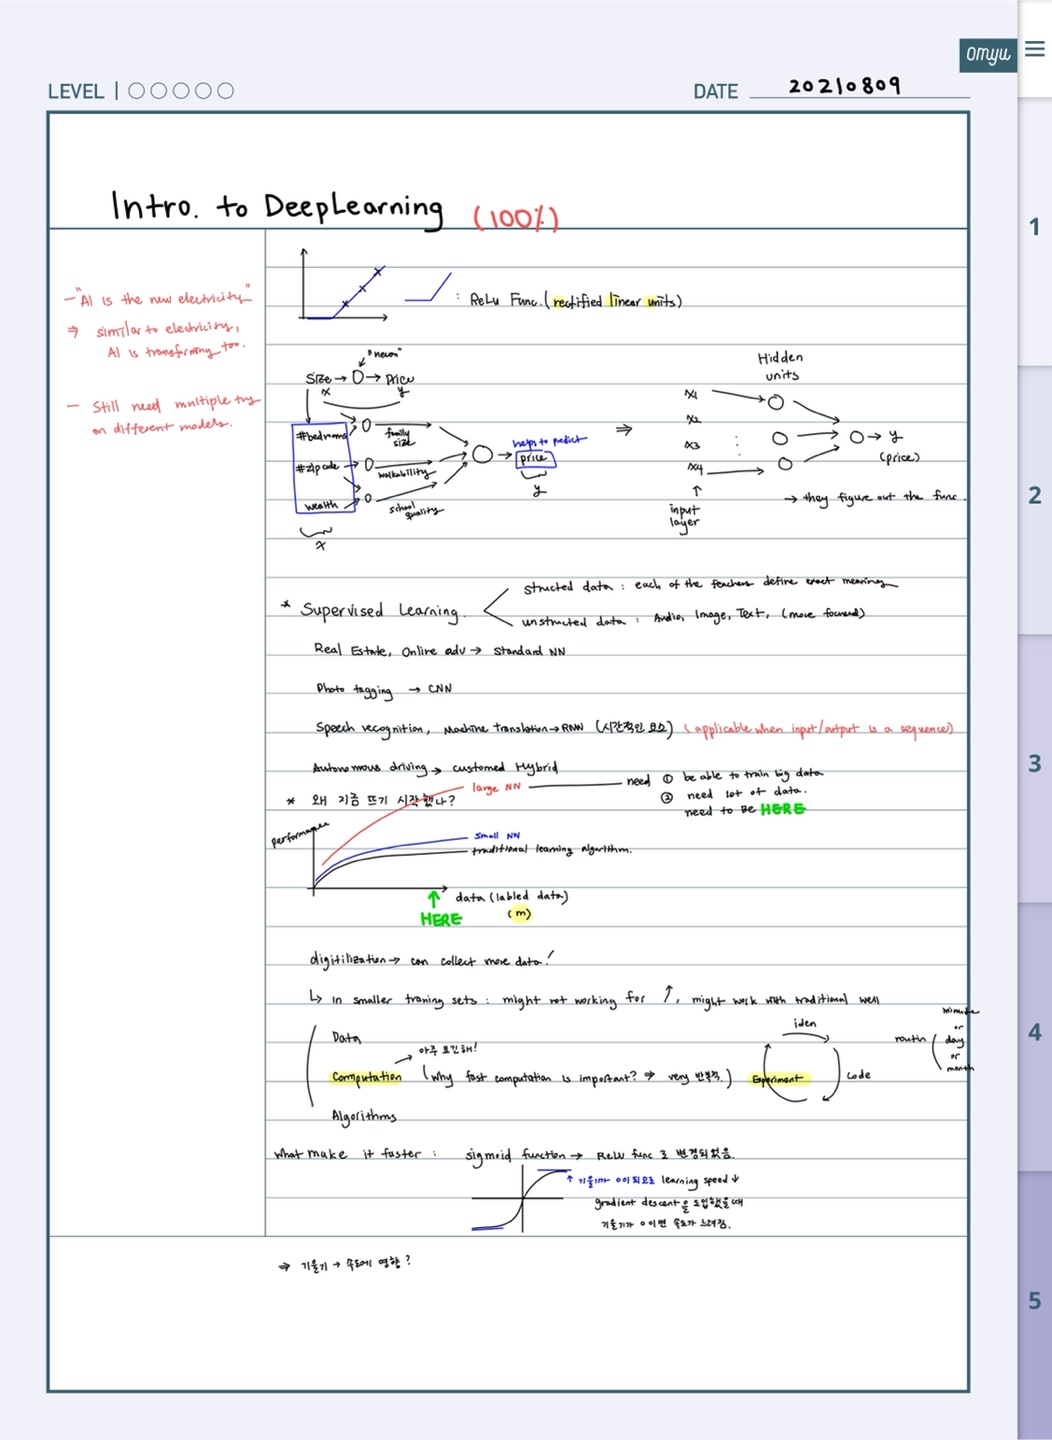 omyu
LEVEL
DATE 20210809
Intro. to DeepLearning (100%)
- "AI is the new electricity"
⇒ similar to electricity,
AI is transforming too.
- Still need multiple try
on different models.
: ReLu Func. (rectified linear units)
"neuron"
Size → O → Price
x y
#bedrooms
#zip code
wealth
x
family size
walkability
school quality
helps to predict
price
y
⇒
Hidden units
x1
x2
x3
x4
↑
input layer
→ y
(price)
→ they figure out the func.
* Supervised Learning.
structed data : each of the feachers define exact meaning
unstructed data : Audio, Image, Text, (more focused)
Real Estate, Online adv → Standard NN
Photo tagging → CNN
Speech recognition, Machine Translation → RNN (시간적인 요소) (applicable when input/output is a sequence)
Autonomous driving → customed Hybrid
* 왜 지금 뜨기 시작했나?
large NN
need ① be able to train big data
② need lot of data.
need to be HERE
performance
Small NN
traditional learning algorithm.
data (labled data)
(m)
↑
HERE
digitilization → can collect more data!
↳ In smaller traning sets : might not working for ↑, might work with traditional well
Data
→ 아주 요긴해!
Computation (Why fast computation is important? ⇒ very 반복적.)
Algorithms
iden
Code
Experiment
routin
minute
or
day
or
month
What make it faster : sigmoid function → ReLU func 로 변경되었음.
↑ 기울기가 0이 되므로 learning speed ↓
gradient descent을 도입했을 때
기울기가 0이면 속도가 느려짐.
⇒ 기울기 → 속도에 영향?
1
2
3
4
5